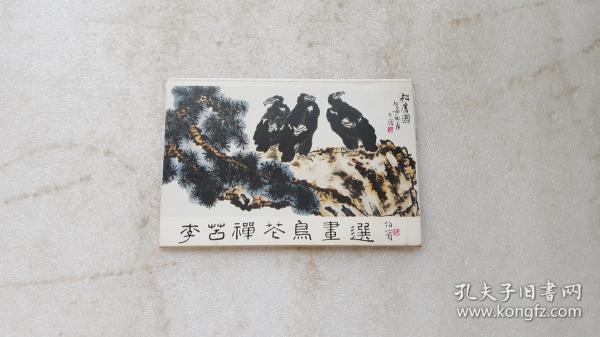 松鷹圖
李苦禪花鳥畫選
孔夫子旧書网
www.kongfz.com